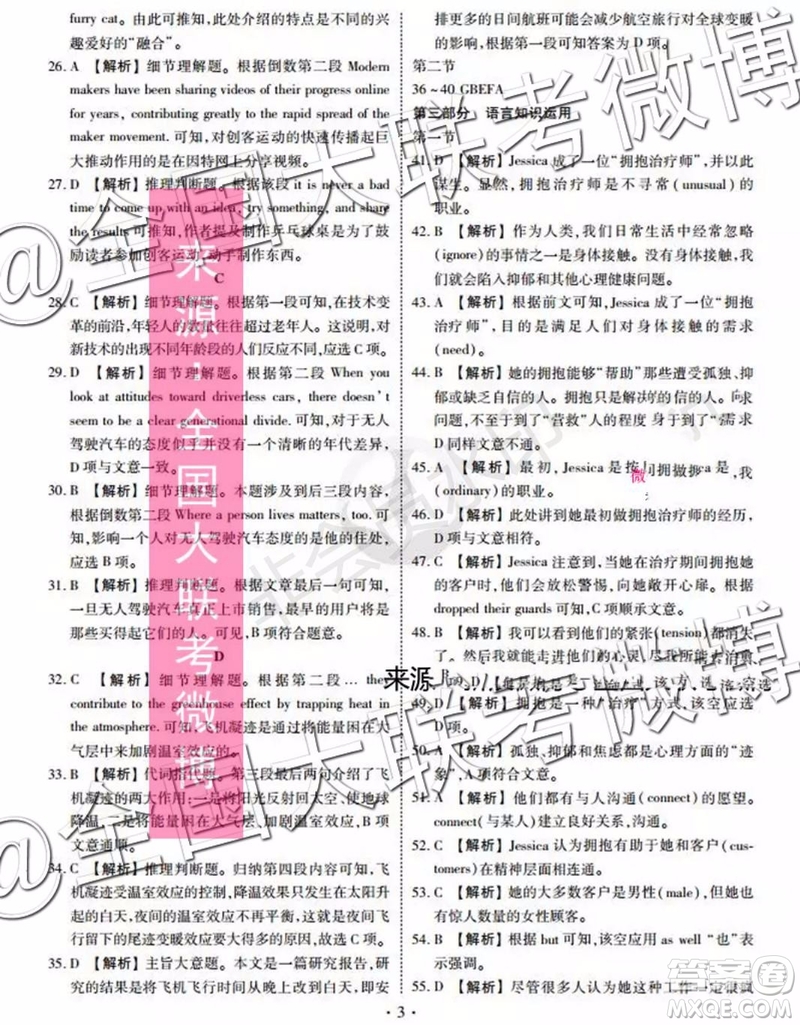 furry cat. 可知，此处介绍的特点是不同的兴
趣爱好的“融合”。
26. A 【解析】细节理解题。根据倒数第二段 Modern
makers have been sharing videos of their progress online
for years, contributing greatly to the rapid spread of the
maker movement. 可知，对创客运动的快速传播起巨
大推动作用的是在因特网上分享视频。
27. D 【解析】推理判断题。根据该段 it is never a bad
time to come up with an idea, try something, and share
the results 可推知，作者提及制作乒乓球桌是为了鼓
励读者参加创客运动，动手制作东西。
C
28. C 【解析】细节理解题。根据第一段可知，在技术变
革的前沿，年轻人的数量往往超过老年人。这说明，对
新技术的出现不同年龄段的人们反应不同，应选 C 项。
29. D 【解析】细节理解题。根据第二段 When you
look at attitudes toward driverless cars, there doesn't
seem to be a clear generational divide. 可知，对于无人
驾驶汽车的态度似乎并没有一个清晰的年代差异，
D 项与文意一致。
30. B 【解析】细节理解题。本题涉及到段首主题句。
根据倒数第二段 Where a person lives matters, too. 可
知，影响一个人对无人驾驶汽车态度的是他的住处，
应选 B 项。
31. B 【解析】推理判断题。根据文章最后一句可知，
一旦无人驾驶汽车真正上市销售，最早的用户将是
那些买得起它们的人。可见，B 项符合题意。
D
32. C 【解析】细节理解题。根据第二段 … they
contribute to the greenhouse effect by trapping heat in
the atmosphere. 可知，飞机凝迹是通过将能量困在大
气层中来加剧温室效应的。
33. B 【解析】代词指代题。第三段最后两句介绍了飞
机凝迹的两大作用：一是将阳光反射回太空、使地球
降温，二是将能量困在大气层、使空气变暖。B 项使
文意通顺。
34. C 【解析】推理判断题。归纳第四段内容可知，飞
机凝迹受温室效应的控制，降温效果发生在太阳升
起的白天，夜间的温室效应不再平衡，这就使夜间飞
行留下的尾迹变暖效应大得多的原因，故选 C 项。
35. D 【解析】主旨大意题。本文是一篇研究报告，研
究表明，将飞机飞行时间从晚上改到白天，即安
排更多的日间航班可能会减少航空旅行对全球变暖
的影响，根据这一段可知答案为 D 项。
第二节
36～40 GBEFA
第三部分 语言知识运用
第一节
41. D 【解析】Jessica 成了一位“拥抱治疗师”，并以此
谋生。显然，拥抱治疗师是不寻常(unusual)的
职业。
42. B 【解析】作为人类，我们日常生活中经常忽略
(ignore)的事情之一是身体接触。没有身体接触，我
们就会陷入抑郁和其他心理健康问题。
43. A 【解析】根据前文可知，Jessica 成了一位“拥抱
治疗师”，目的是满足人们对身体接触的需求
(need)。
44. B 【解析】她的拥抱能够“帮助”那些遭受孤独、抑
郁或缺乏自信的人。
D 同样文意不通。
45. A 【解析】最初，Jessica
(ordinary)的职业。
46. D 【解析】此处讲到她最初做拥抱治疗师的经历，
D 项与文意相符。
47. C 【解析】Jessica 注意到，当她在治疗期间拥抱她
的客户时，他们会放松警惕、向她敞开心扉。根据
dropped their guards 可知，C 项正确。
48. B 【解析】我可以看到他们的紧张(tension)都消失
了。
49. D 【解析】拥抱是一种“治疗”方式，该空应选
D 项。
50. A 【解析】孤独、抑郁和焦虑都是心理方面的“迹
象”，A 项符合文意。
51. A 【解析】他们都有与人沟通(connect)的愿望。
connect(与某人)建立良好关系，沟通。
52. B 【解析】Jessica 认为拥抱有助于她和客户(cus-
tomers)在精神层面的交流。
53. C 【解析】她的大多数客户是男性(male)，但她也
有惊人数量的女性顾客。
54. B 【解析】根据 but 可知，该空应用 as well “也”表
示强调。
55. D 【解析】尽管很多人认为她这种工作一定很疯
· 3 ·
@全国大联考微博
来源：全国大联考微博
来源
答案圈
MXQE.COM